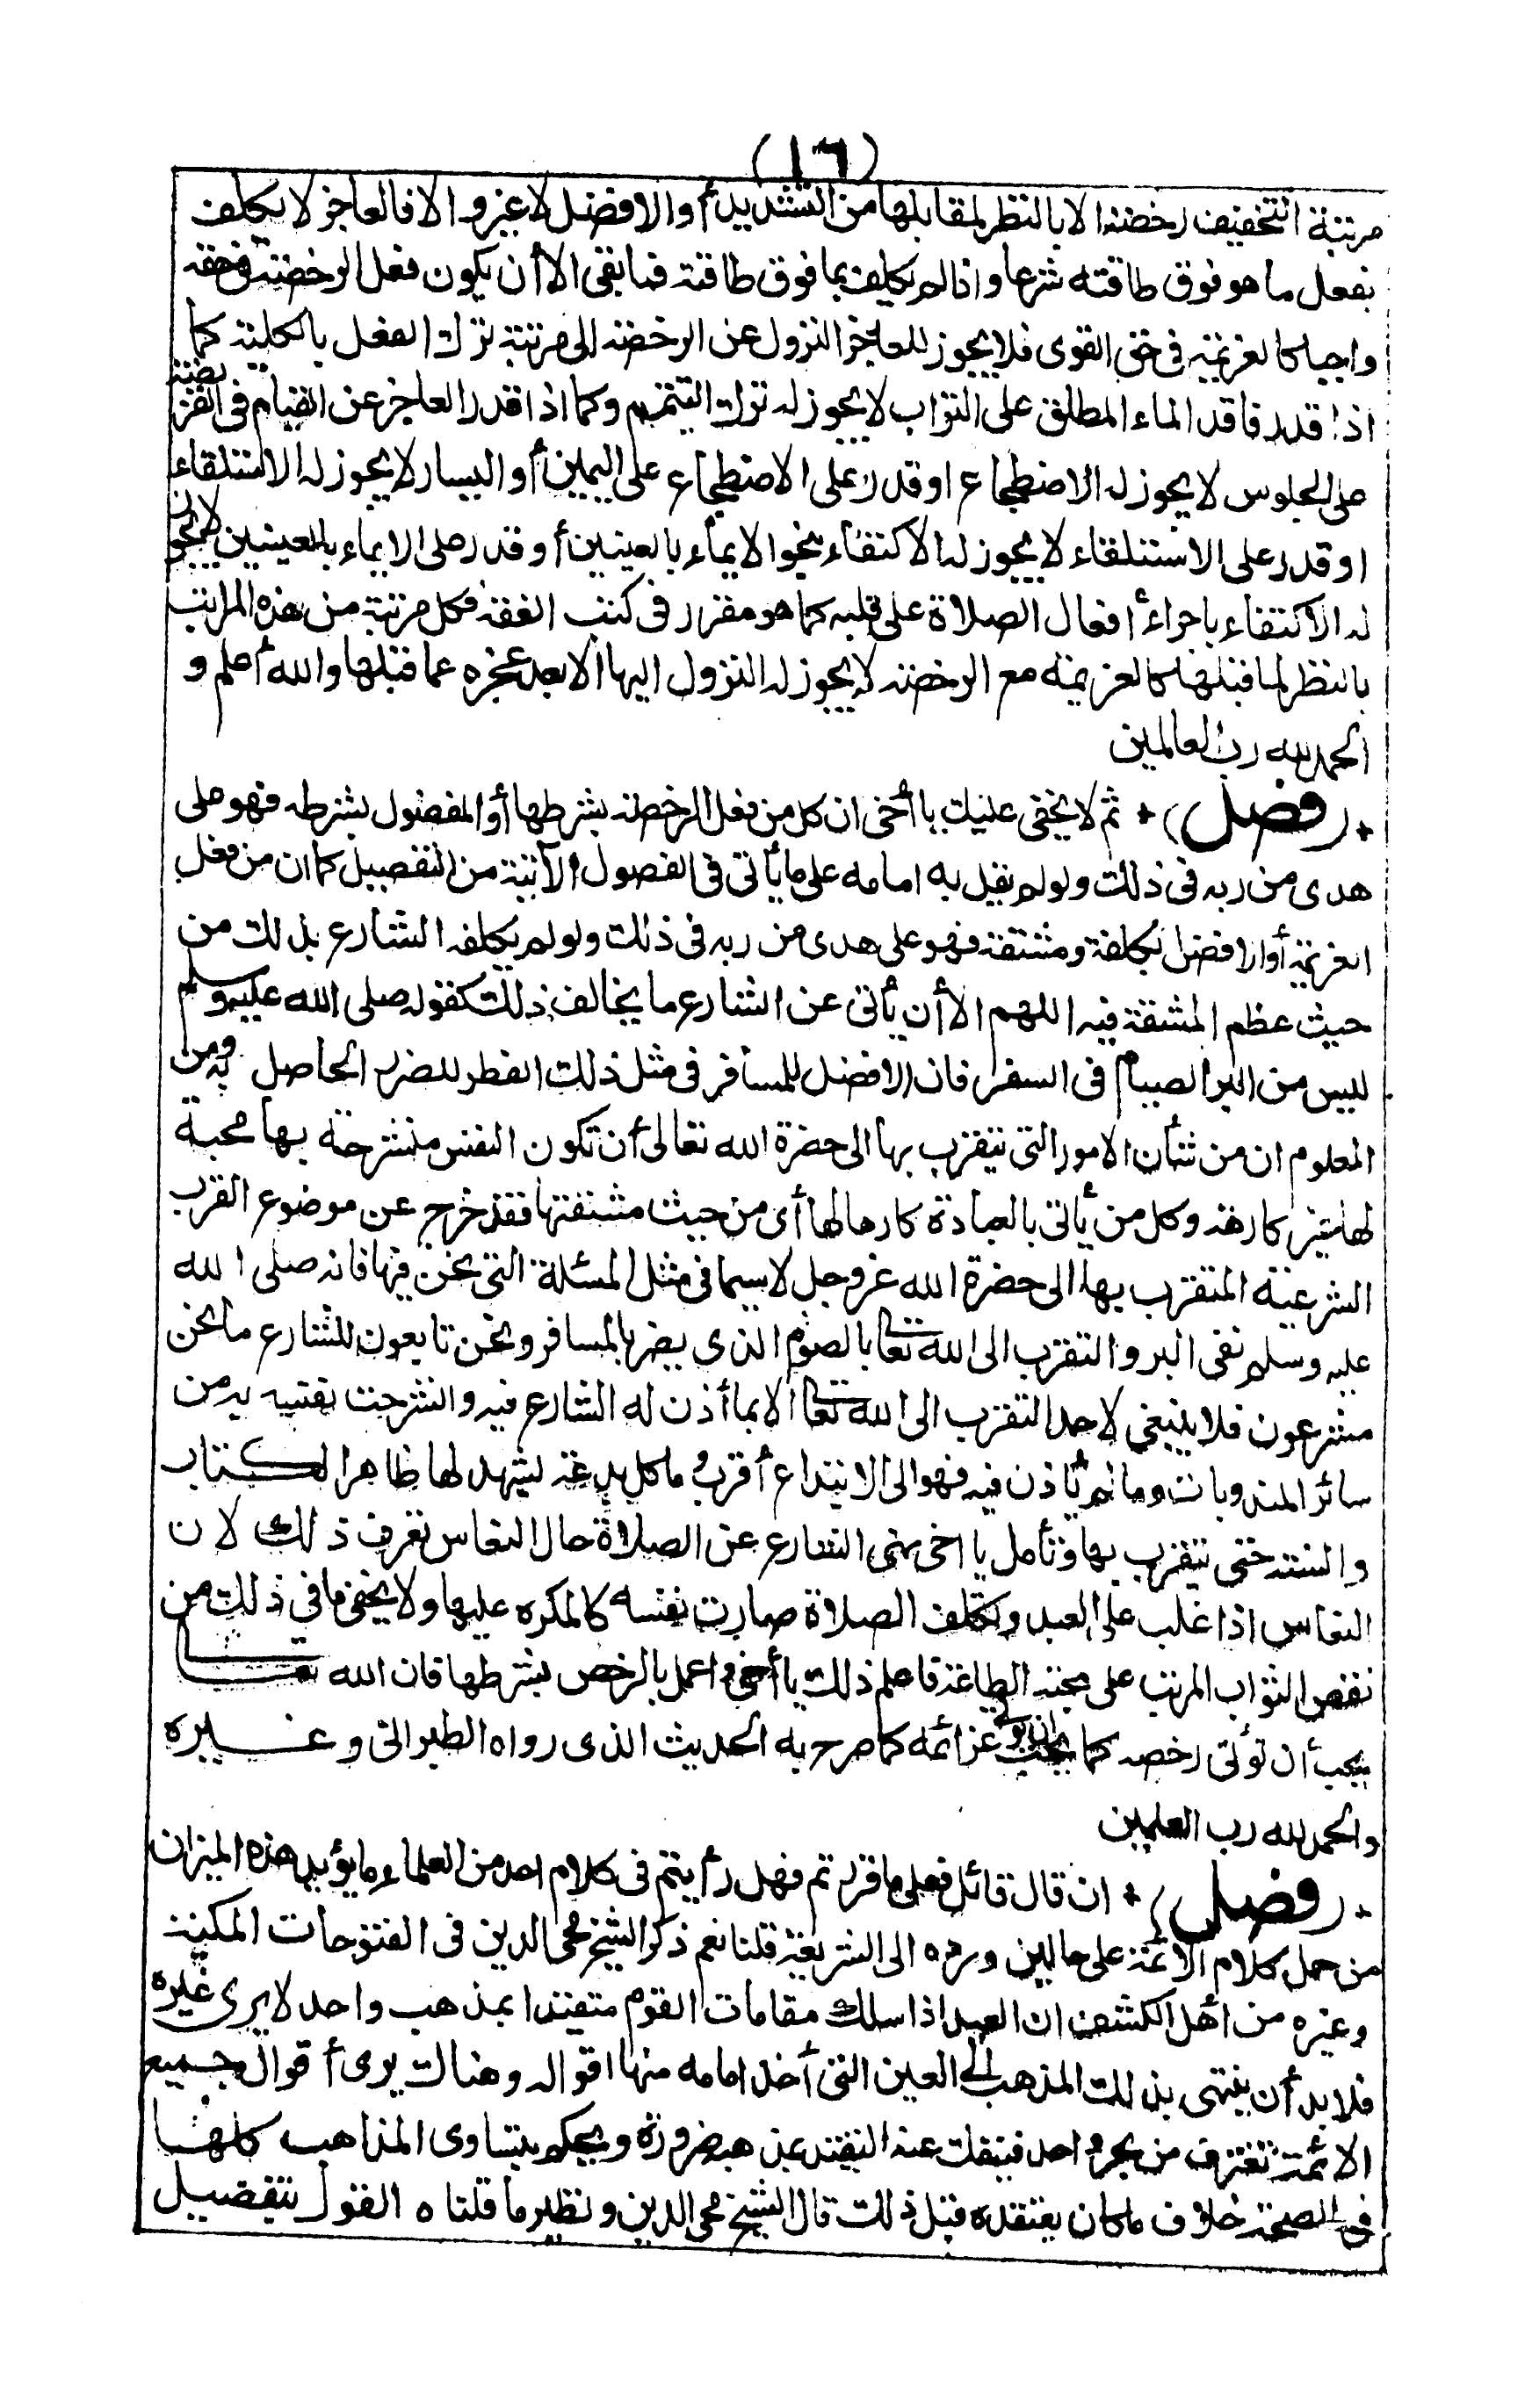 (١٦)
مرتبة التخفيف رخصة الا بالنظر لمقابلها من التشديد أو الافضل لا غير والا فالعاجز لا يكلف
بفعل ما هو فوق طاقته شرعا واذا لم يكلف بما فوق طاقته فما بقى الا أن يكون فعل الرخصة فى حقه
واجبا كالعزيمة فى حق القوى فلا يجوز للعاجز النزول عن الرخصة الى مرتبة ترك الفعل بالكلية كما
اذا قدر فاقد الماء المطلق على التراب لا يجوز له ترك التيمم وكما اذا قدر العاجز عن القيام فى الفريضة
على الجلوس لا يجوز له الاضطجاع او قدر على الاضطجاع على اليمين أو اليسار لا يجوز له الاستلقاء
او قدر على الاستلقاء لا يجوز له الاكتفاء بنحو الايماء بالعينين أو قدر على الايماء بالعينين لا يجوز
له الاكتفاء باجراء أفعال الصلاة على قلبه كما هو مقرر فى كتب الفقه فكل مرتبة من هذه المراتب
بالنظر لما قبلها كالعزيمة مع الرخصة لا يجوز له النزول اليها الا بعد عجزه عما قبلها والله أعلم و
الحمد لله رب العالمين
* (فصل) * ثم لا يخفى عليك يا أخى ان كل من فعل الرخصة بشرطها أو المفضول بشرطه فهو على
هدى من ربه فى ذلك ولو لم يقل به امامه على ما يأتى فى الفصول الآتية من التفصيل كما ان من فعل
العزيمة أو الافضل بكلفة ومشقة فهو على هدى من ربه فى ذلك ولو لم يكلفه الشارع بذلك من
حيث عظم المشقة فيه اللهم الا أن يأتى عن الشارع ما يخالف ذلك كقوله صلى الله عليه وسلم
ليس من البر الصيام فى السفر فان الافضل للمسافر فى مثل ذلك الفطر للضرر الحاصل به ومن
المعلوم ان من شأن الامور التى يتقرب بها الى حضرة الله تعالى أن تكون النفس منشرحة بها محبة
لها غير كارهة وكل من يأتى بالعبادة كارها لها أى من حيث مشقتها فقد خرج عن موضوع القرب
الشرعية المتقرب بها الى حضرة الله عز وجل لاسيما فى مثل المسئلة التى نحن فيها فانه صلى الله
عليه وسلم نفى البر والتقرب الى الله تعا بالصوم الذى يضر بالمسافر ونحن تابعون للشارع ما نحن
مشرعون فلا ينبغي لاحد التقرب الى الله تعا الا بما أذن له الشارع فيه وانشرحت نفسه به من
سائر المندوبات وما لم يأذن فيه فهو الى الابتداع أقرب وما كل بدعة يشهد لها ظاهر الكتاب
والسنة حتى يتقرب بها وتأمل يا اخى نهى الشارع عن الصلاة حال النعاس تعرف ذلك لان
النعاس اذا غلب على العبد وتكلف الصلاة صارت نفسه كالمكره عليها ولا يخفى ما فى ذلك من
نقص الثواب المرتب على محبة الطاعة فاعلم ذلك يا أخى واعمل بالرخص بشرطها فان الله تعا
يحب أن تؤتى رخصه كما يحب ان تؤتى عزائمه كما صرح به الحديث الذى رواه الطبرانى وغيره
والحمد لله رب العلمين
* (فصل) * ان قال قائل فعلى ما قررتم فهل رأيتم فى كلام احد من العلماء ما يؤيد هذه الميزان
من حمل كلام الائمة على حالين ورده الى الشريعة قلنا نعم ذكر الشيخ محى الدين فى الفتوحات المكية
وغيره من أهل الكشف ان العبد اذا سلك مقامات القوم متقيدا بمذهب واحد لا يرى غيره
فلا بد أن ينتهى بذلك المذهب الى العين التى أخذ امامه منها اقواله وهناك يرى أقوال جميع
الائمة تغترف من بحر واحد فينفك عنه التقيد بمذهبه ضرورة ويحكم بتساوى المذاهب كلها
فى الصحة خلاف ما كان يعتقده قبل ذلك قال الشيخ محى الدين ونظير ما قلناه القول بتفضيل